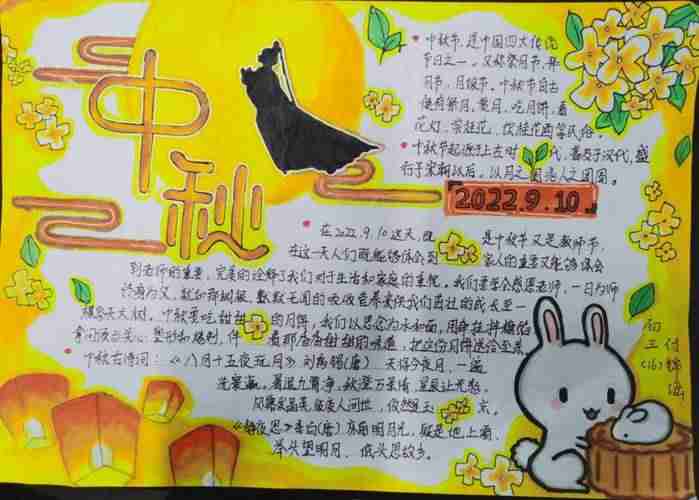 中秋
中秋节，是中国四大传统
节日之一。又称祭月节、拜
月节、月娘节。中秋节自古
便有祭月、赏月、吃月饼、看
花灯、赏桂花、饮桂花酒等民俗
中秋节起源于上古时代，普及于汉代，盛
行于宋朝以后。以月之圆兆人之团圆。
2022.9.10
在2022.9.10这天，既是中秋节又是教师节，
在这一天人们既能够体会到家人的重要又能够体会
到老师的重要，完美的诠释了我们对于生活和家庭的重视。我们要学会感恩老师，一日为师
终身为父，就如那树根，默默无闻的吸收营养来供我们茁壮的成长至一
棵参天大树，中秋要吃甜甜的月饼，我们以思念为水和面，用牵挂拌馅
把这份月饼送给至亲。
中秋古诗词：《八月十五夜玩月》刘禹锡（唐）天将今夜月，一遍
洗寰瀛。暑退九霄净，秋澄万景清，星辰让光彩，
风露发晶英。能变人间世，攸然是玉京。
《静夜思》李白（唐）床前明月光，疑是地上霜，
举头望明月，低头思故乡。
初三（16）
付锦